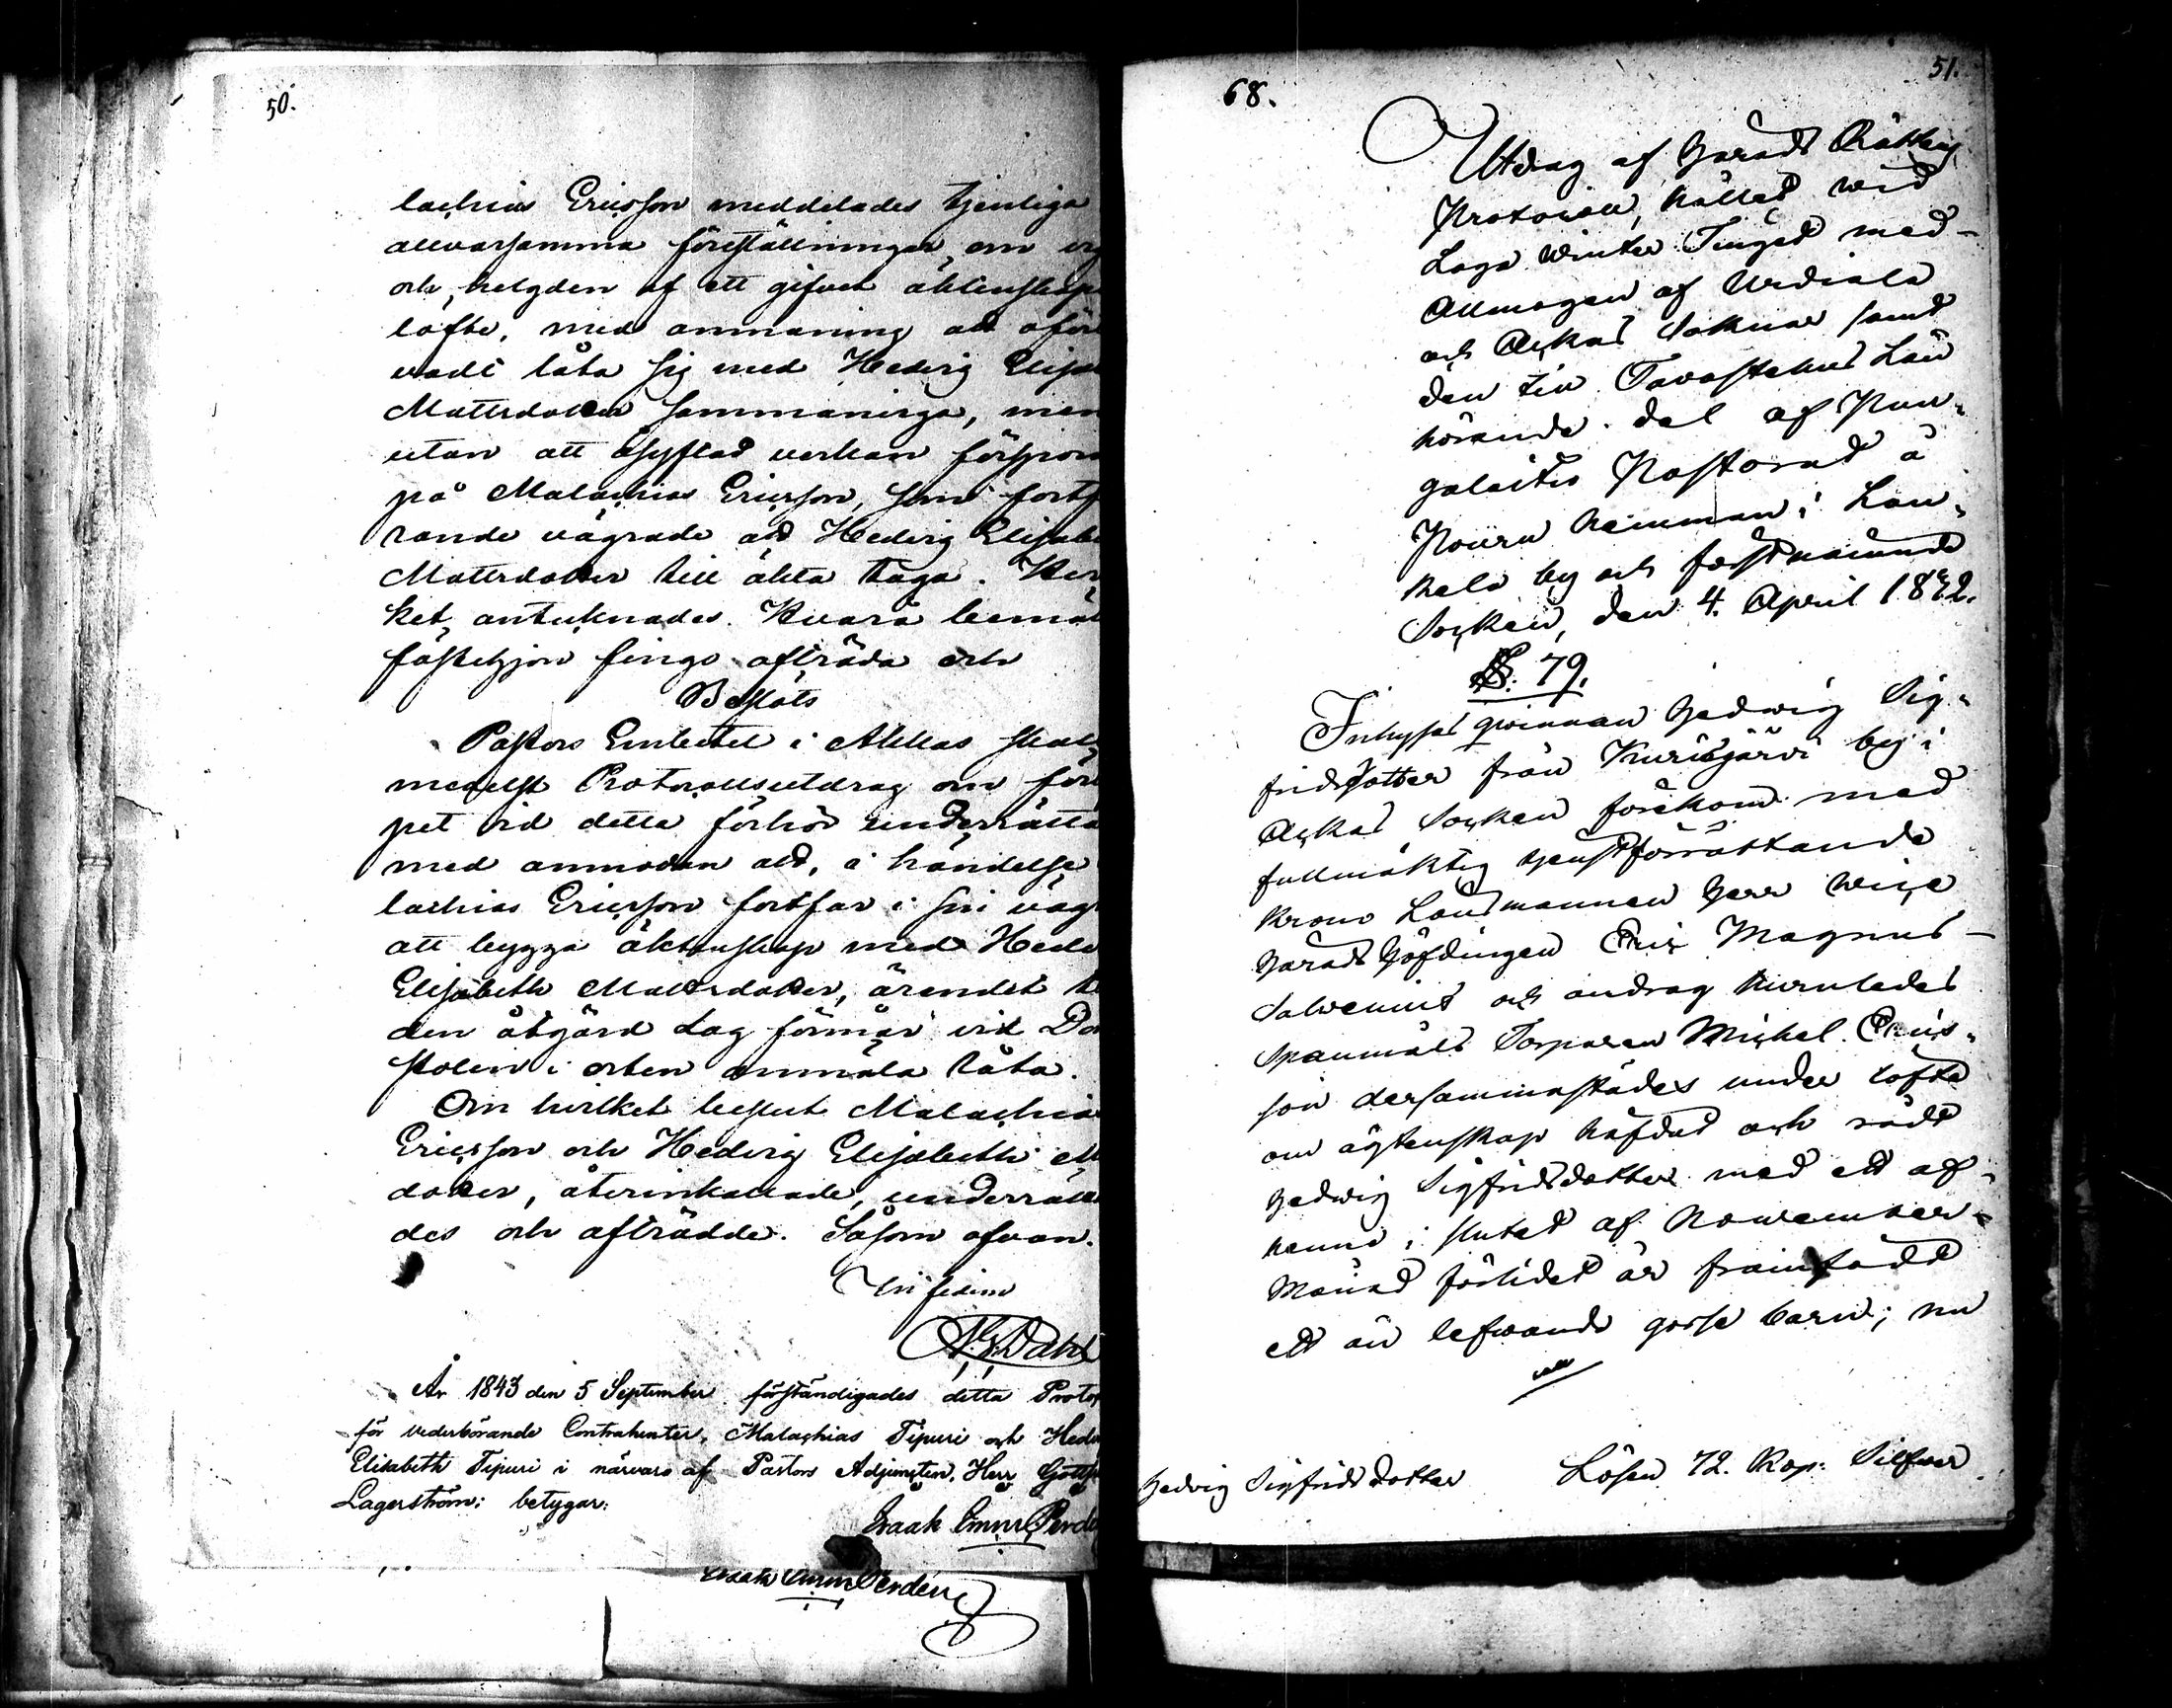 50.
lachias Ericsson meddelades tjenliga
allvarsamma föreställningar om
och helgden af ett gifvet äktenskaps
löfte, med anmaning att oför
vadt låta sig med Hedvig Elisa
Mattsdotter sammanviga, men
utan att åsyftad verkan förspor
på Malachias Ericsson, som fortf
rande vägrade att Hedvig Elisabe
Mattsdotter till äkta taga.
ket, antecknades. Hvarå bemäl
fästehjon fingo afträda och
Beslöts
Pastors Embetet i Akkas skul
medelst Protocollsutdrag om för
pet vid detta förhör underrätta
med anmodan att, i händelse
lachias Ericsson fortfar i sin väg
att bygga äktenskap med Hedv
Elisabeth Mattsdotter, ärendet
den åtgärd Lag förmår vid Do
stolen i orten anmäla låta.
Om hvilket beslut Malachia
Ericsson och Hedvig Elisabeth
dotter, återinkallade, underrätta
des och afträdde. Såsom ofvan.
In fidem
Dahl
År 1843 den 5 September förständigades detta Proto
för vederbörande Contrahenter, Malachias Tipuri och Hedv
Elisabeth Tipuri i närvaro af Pastors Adjuncten, Herr
Lagerström; betygar:
Isaak Perde
Isaak Perdén
68.
51.
Utdrag af Härads Rättens
Protocoll, hållet wid
Laga Winter Tinget med
Allmogen af Urdiala
och Ackas Soknar samt
den till Tavastehus Län
hörande del af Pun-
galaitio Pastorat å
heimman i Lau-
kela by och förstnämnde
Socken, den 4. April 1842.
§. 79.
Inhyses qwinnan Hedwig Sig-
fridsdotter från Kurisjärvi by i
Ackas Socken förekom med
fullmäktig tjenstförrättande
Krono Länsmannen Herr Wice
Häradshöfdingen Eric Magnus
Salvenius och androg huruledes
Spanmåls Torparen Michel Erics-
son dersammastädes under löfte
om ägtenskap häfdat och rådt
Hedwig Sigfridsdotter med ett af
henne i slutet af November
Månad förlidet år framfödt
ett än lefwande gosse barn; nu
Hedvig Sigfridsdotter Lösen 72. Kop: Silfwer